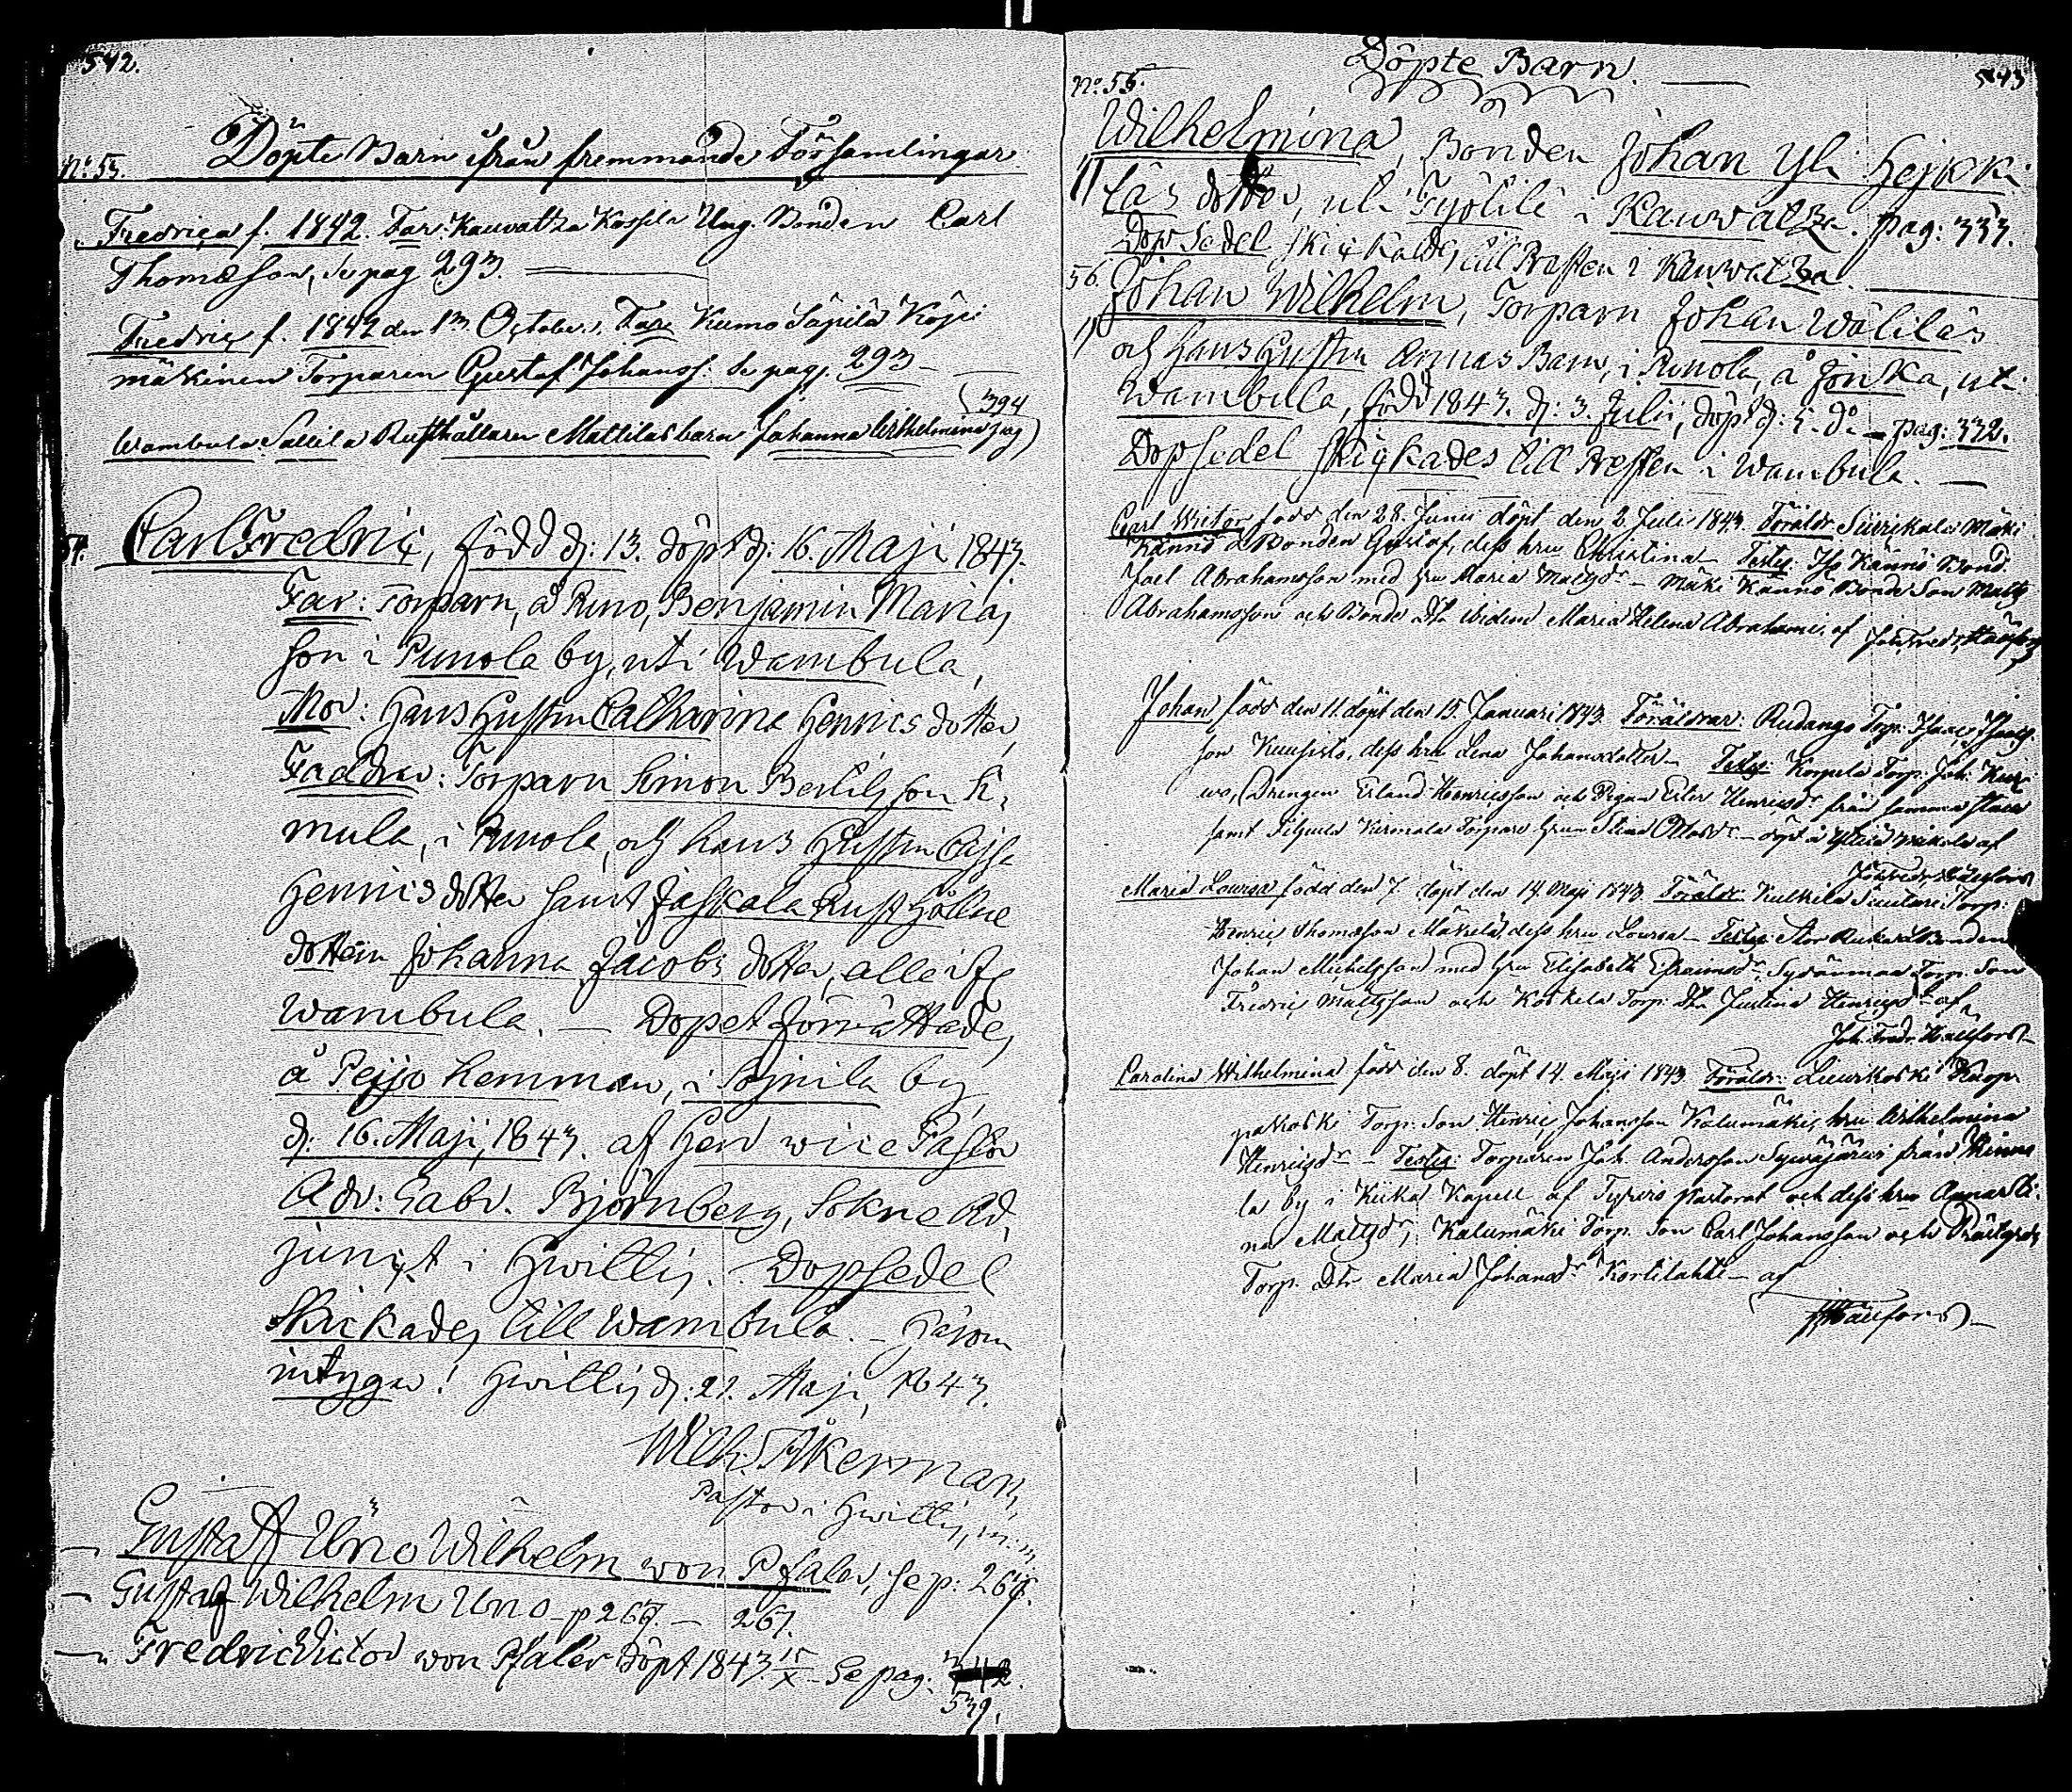 542.
Döpte Barn ifrån fremmande Församlingar
No: 53.
Fredrica f. 1842. Far: Kauvatza Kossila Ung. Bonden Carl
Thomæson, Se pag 293.
Fredric f. 1842 den 1 October, Far: Kumo Säpilä
mäkinen Torparen Gustaf Johanss: Se pag. 293
Wambula Sallila Rusthållaren Mattilas barn Johanna Wilhelmina pag 394
54. Carl Fredric, född d: 13. döpt d: 16. Maji 1843.
Far: Torparn, å Runo, Benjamin Marias
son i Punola by, uti Wambula,
Mor: Hans Hustru Catharina Henricsdotter,
Faddrar: Torparn Simon Bertilsson Ki,
mula, i Punola, och hans Hustru Cajsa
Henricsdotter samt Jaskala Rusthålls
dottern Johanna Jacobs dotter, alle ifr
Wambula. — Dopet förrättades
å Pejjo Hemman, i Sojnila by,
d: 16. Maji, 1843. af Herr vice Pastor
Adr: Gabr. Björnberg, Sokne Ad,
junct i Hvittis. Dopsedel
skickades till Wambula. —
intygar! Hvittis d: 21. Maji, 1843.
Wilh. Åkerman,
Pastor i Hvittis, m. m.
Gustaf Uno Wilhelm von Pfaler, se p: 266.
Gustaf Wilhelm Uno - p 266. — 267.
Fredric Victor von Pfaler döpt 1843 15/X - Se pag:
539.
Döpte Barn.
543
No: 55.
Wilhelmina, Bonden Johan Yli Hejkki
läs dotter, uti Työlilä i Kauwatza. pag: 333.
Dop Sedel skickades till Presten i Kauwatza.
56. Johan Wilhelm, Torparn Johan Wälilas
och Hans Hustru Annas Barn, i Punola, å Jonka, uti
Wambula, född 1843. d: 3. Julii, döpt d: 5. do — pag: 332.
Dopsedel skickades till Presten i Wambula. —
Carl Victor född den 28. Junii döpt den 2. Julii 1843. Föräldr. Suurikala Mäki
Kännö Bonden Gustaf, dess hru Christina — Testes: Iso Kännö Bond.
Joel Abrahamsson med hru Maria Mattsdr — Mäki Kännö Bonde Son Matts
Abrahamsson och Bonde Dtr ibidem Maria Helena Abrahami, af Joh. Fredr. Hällfors
Johan född den 11. döpt den 15. Januari 1843. Föräldrar: Rudango Torp: Isaac Isaacs
son Kuusisto, dess hru Lena Johansdotter — Testes: Korpela Torp: Joh:
wo, Drengen Erland Henricsson och Pigan Ester Henricsdr från samma ställe
samt Kirmola Torpare hru Stina Ottosdr — döpt å af
Joh. Fredr. Hällfors
Maria Lovisa född den 7. döpt den 14. Maji 1843. Föräldr. Kulkila Suutari Torp:
Henric Thomasson Mäkelä, dess hru Lovisa — Testes: Stor Bonden
Johan Michelsson med hru Elisabeth Efraimsdr Sydänmaa Torp. Son
Fredric Mattsson och Koskela Torp: Dtr Justina Henricsdr af
Joh. Fredr. Hällfors —
Carolina Wilhelmina född den 8. döpt 14. Maji 1843. Föräldr: Liewikoski
pakoski Torp: Son Henric Johansson Kalumäki, hru Wilhelmina
Henricsdr — Testes: Torparen Joh. Andersson från Kinna
la by i Kiika Kapell af Tyrvis pastorat och dess hru Anna Sti
na Mattsdr, Kalumäki Torp. Son Carl Johansson och
Torp. Dtr. Maria Johansdr Kortilahti — af
Hällfors —